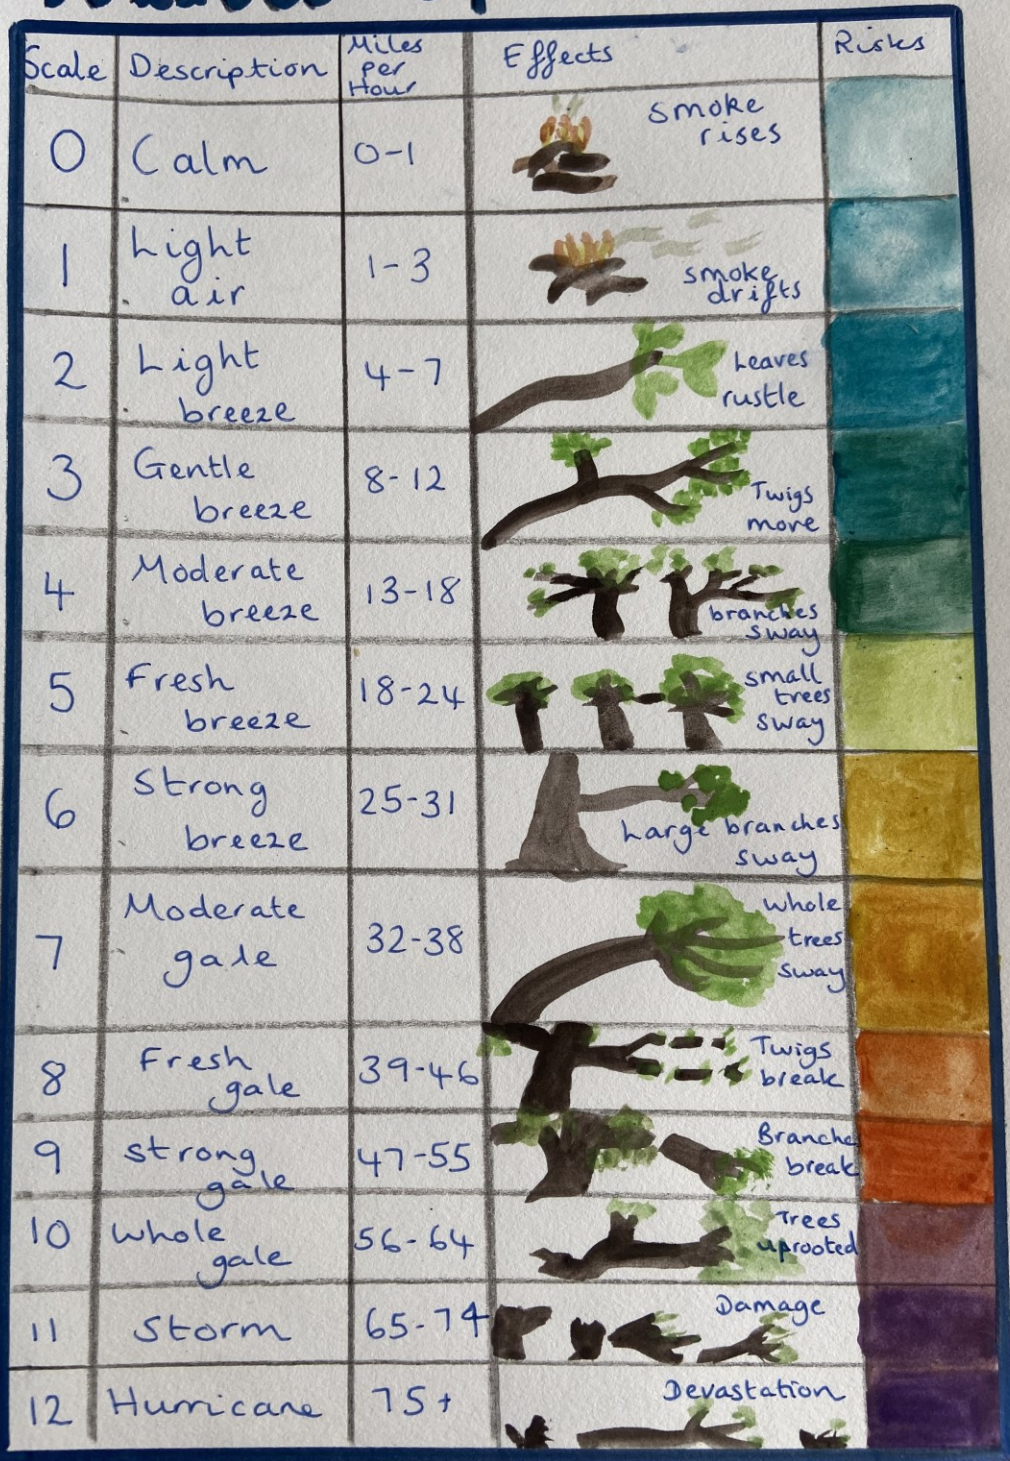 Scale Description Miles per Hour Effects Risks
0 Calm 0-1 smoke rises
1 Light air 1-3 smoke drifts
2 Light breeze 4-7 Leaves rustle
3 Gentle breeze 8-12 Twigs move
4 Moderate breeze 13-18 branches sway
5 Fresh breeze 18-24 small trees sway
6 Strong breeze 25-31 Large branches sway
7 Moderate gale 32-38 whole trees sway
8 Fresh gale 39-46 Twigs break
9 strong gale 47-55 Branche break
10 whole gale 56-64 Trees uprooted
11 Storm 65-74 Damage
12 Hurricane 75+ Devastation